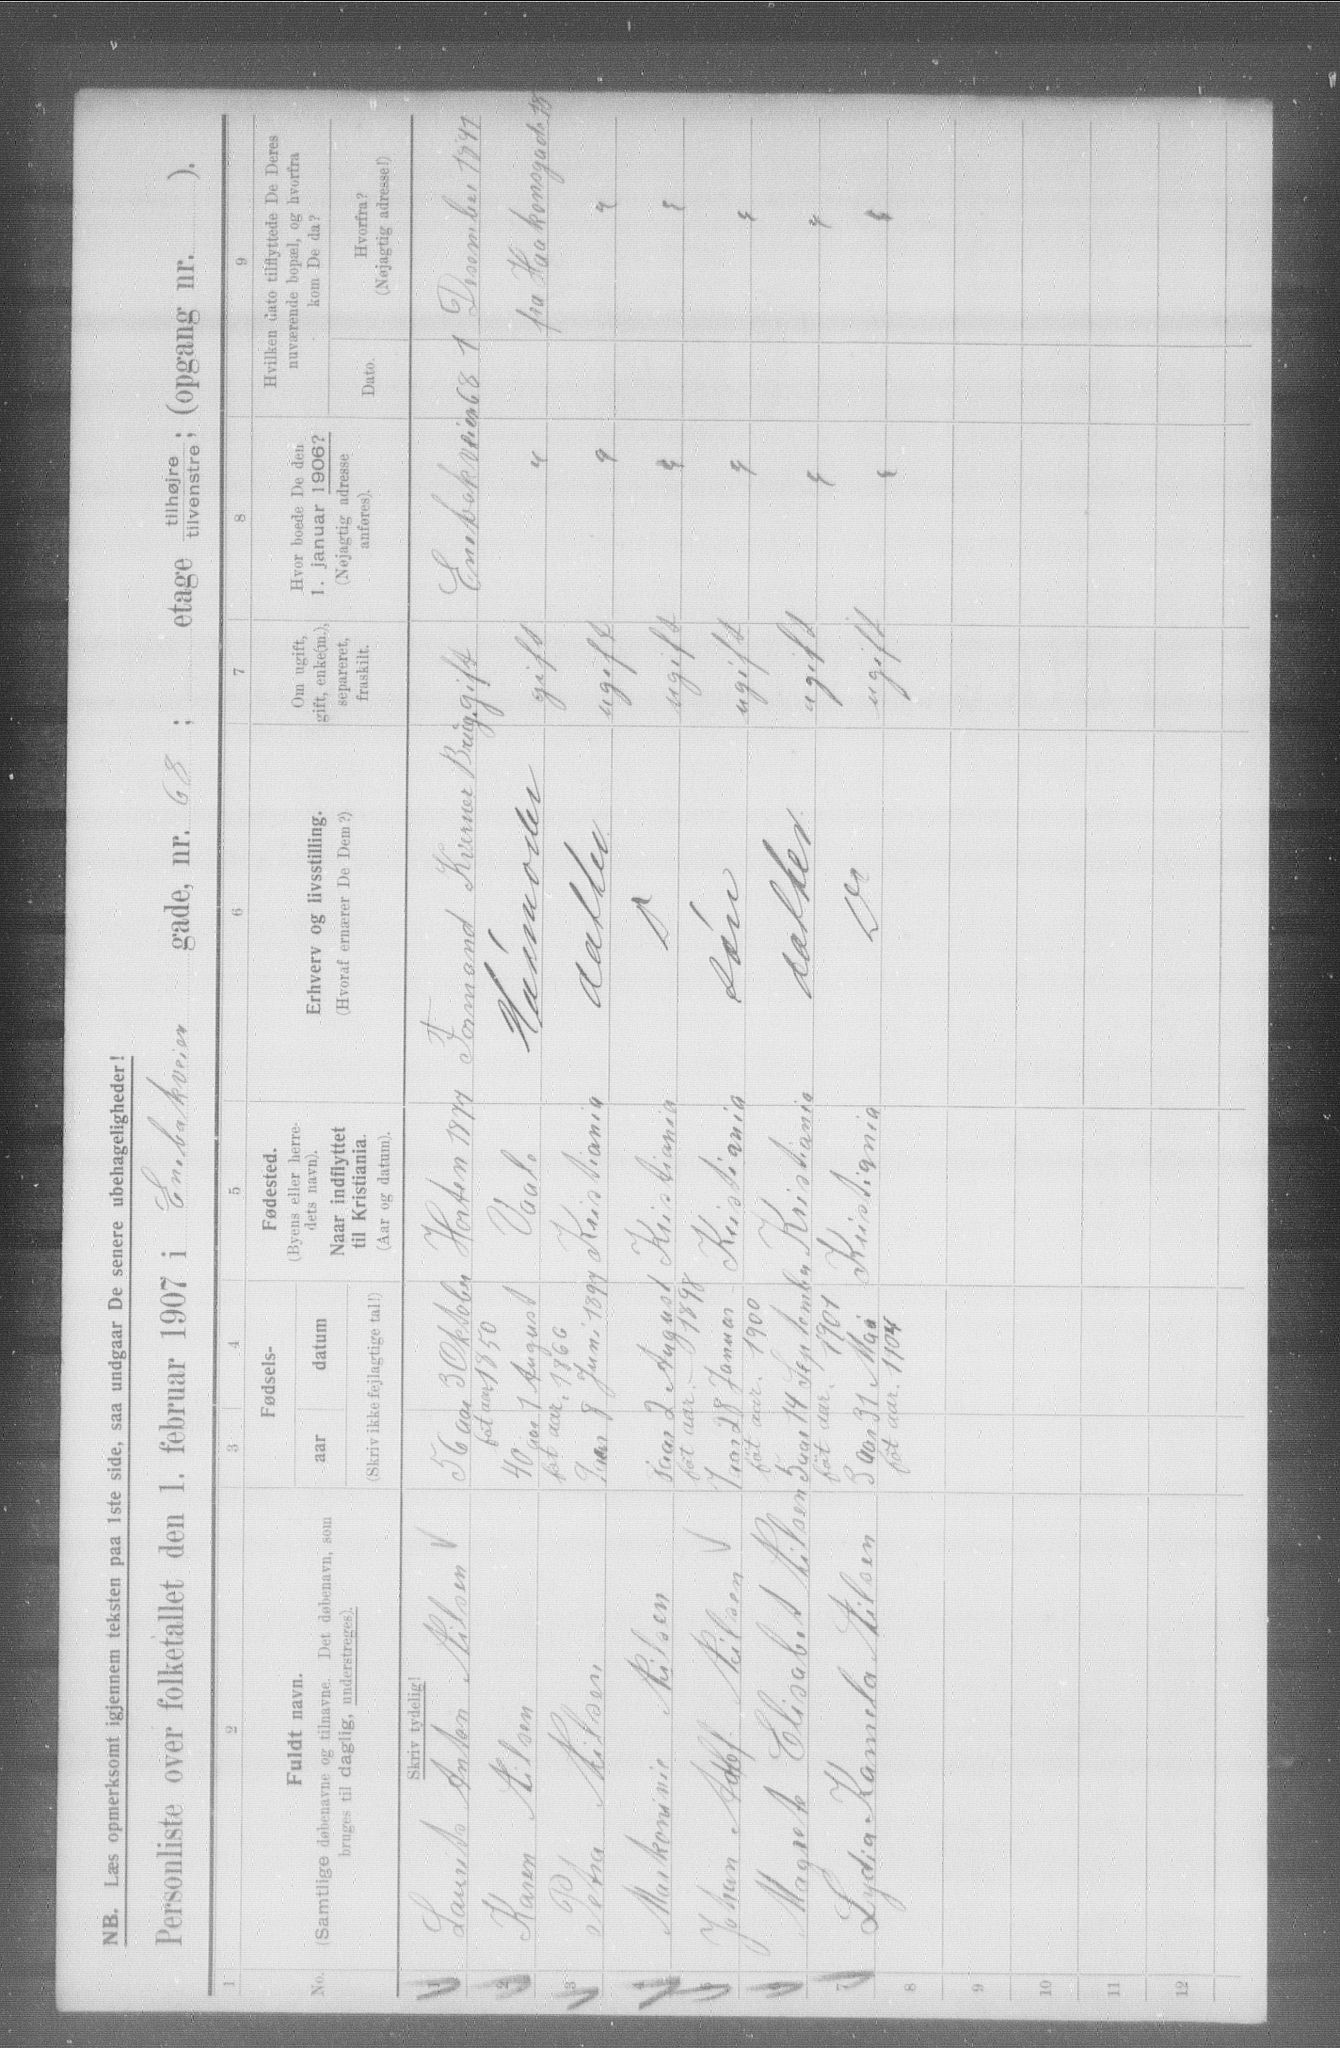 NB. Læs opmerksomt igjennem teksten paa 1ste side, saa undgaar De senere ubehageligheder!
Personliste over folketallet den 1. februar 1907 i Enebakveien gade, nr. 68 ; etage tilhøjre / tilvenstre; (opgang nr. ).
1 2 3 4 5 6 7 8 9
No.
Fuldt navn.
(Samtlige døbenavne og tilnavne. Det døbenavn, som
bruges til daglig, understreges).
Fødsels-
aar datum
(Skriv ikke fejlagtige tal!)
Fødested.
(Byens eller herre-
dets navn).
Naar indflyttet
til Kristiania.
(Aar og datum).
Erhverv og livsstilling.
(Hvoraf ernærer De Dem?)
Om ugift,
gift, enke(m.),
separeret,
fraskilt.
Hvor boede De den
1. januar 1906?
(Nøjagtig adresse
anføres).
Hvilken dato tilflyttede De Deres
nuværende bopæl, og hvorfra
kom De da?
Dato.
Hvorfra?
(Nøjagtig adresse!)
Skriv tydelig!
1 Laurits Anton Nilsen 56 aar 3 Oktober Horten 1877 Formand Kverner Brug gift Enebakveien 68 1 Desember
født aar 1850
2 Karen Nilsen 40 aar 1 August Vaale Husmoder gift " fra Haakonsgade 18
føt aar. 1866
3 Petra Nilsen 9 aar 8 Juni 1897 Kristiania datter ugift " "
4 Nilsen 8 aar 2 August Kristiania D ugift " "
føt aar. 1898
5 Johan Adolf Nilsen 7 aar 28 Januar Kristiania søn ugift " "
føt aar. 1900
6 Magrete Elisabet Nilsen 5 aar 14 September Kristiania datter ugift " "
føt aar. 1901
7 Lydia Kamela Nilsen 3 aar 31 Mai Kristiania Do ugift " "
føt aar. 1904
8
9
10
11
12